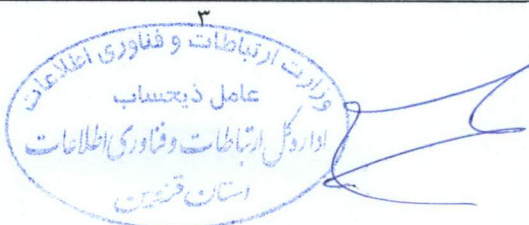 ۳
وزارت ارتباطات و فناوری اطلاعات
عامل ذیحساب
اداره کل ارتباطات و فناوری اطلاعات
استان قزوین